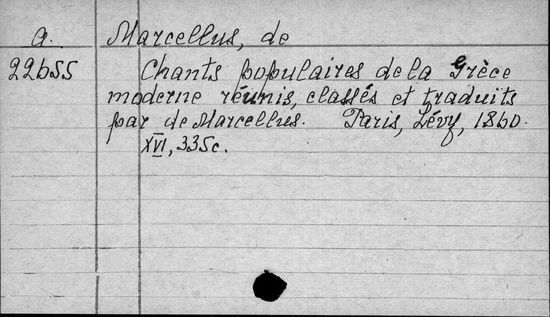 a. Marcellus, de
22655 Chants populaires de la Grèce
moderne réunis, classés et traduits
par de Marcellus. Paris, Lévy, 1860.
XVI, 335c.